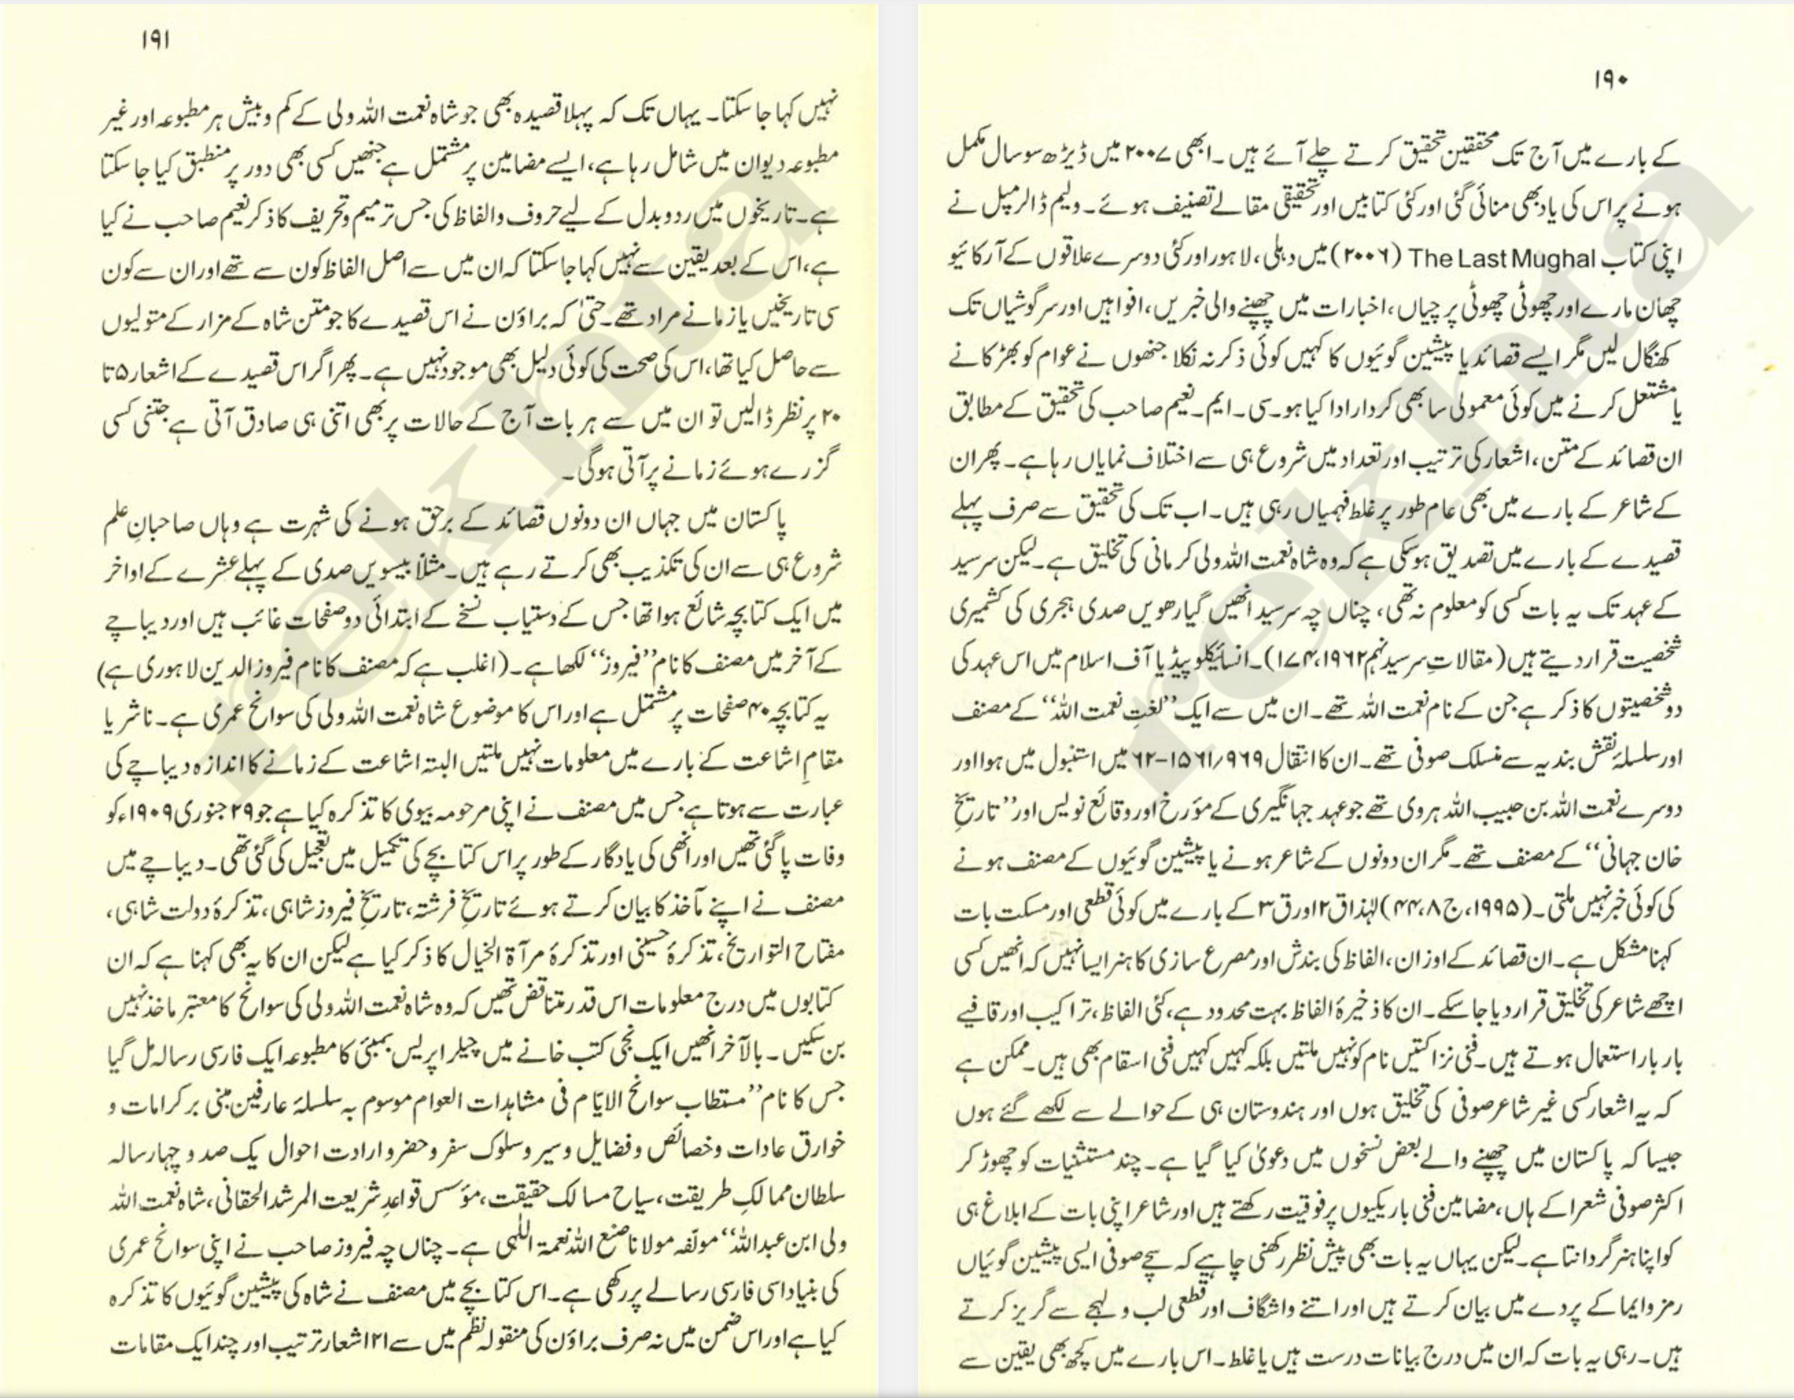 ۱۹۰
کے بارے میں آج تک محققین تحقیق کرتے چلے آئے ہیں۔ ابھی ۲۰۰۷ میں ڈیڑھ سو سال مکمل
ہونے پر اس کی یاد بھی منائی گئی اور کئی کتابیں اور تحقیقی مقالے تصنیف ہوئے۔ ولیم ڈالرمپل نے
اپنی کتاب The Last Mughal (۲۰۰۶) میں دہلی، لاہور اور کئی دوسرے علاقوں کے آرکائیو
چھان مارے اور چھوٹی چھوٹی پرچیاں، اخبارات میں چھپنے والی خبریں، افواہیں اور سرگوشیاں تک
کھنگال لیں مگر ایسے قصائد یا پیشین گوئیوں کا کہیں کوئی ذکر نہ نکلا جنھوں نے عوام کو بھڑکانے
یا مشتعل کرنے میں کوئی معمولی سا بھی کردار ادا کیا ہو۔ سی۔ ایم۔ نعیم صاحب کی تحقیق کے مطابق
ان قصائد کے متن، اشعار کی ترتیب اور تعداد میں شروع ہی سے اختلاف نمایاں رہا ہے۔ پھر ان
کے شاعر کے بارے میں بھی عام طور پر غلط فہمیاں رہی ہیں۔ اب تک کی تحقیق سے صرف پہلے
قصیدے کے بارے میں تصدیق ہو سکی ہے کہ وہ شاہ نعمت اللہ ولی کرمانی کی تخلیق ہے۔ لیکن سرسید
کے عہد تک یہ بات کسی کو معلوم نہ تھی، چناں چہ سرسید انھیں گیارھویں صدی ہجری کی کشمیری
شخصیت قرار دیتے ہیں (مقالاتِ سرسید نہم ۱۹۶۲، ۱۷۴)۔ انسائیکلوپیڈیا آف اسلام میں اس عہد کی
دو شخصیتوں کا ذکر ہے جن کے نام نعمت اللہ تھے۔ ان میں سے ایک ’’لغتِ نعمت اللہ‘‘ کے مصنف
اور سلسلۂ نقش بندیہ سے منسلک صوفی تھے۔ ان کا انتقال ۹۶۹/ ۱۵۶۱-۶۲ میں استنبول میں ہوا اور
دوسرے نعمت اللہ بن حبیب اللہ ہروی تھے جو عہد جہانگیری کے مؤرخ اور وقائع نویس اور ’’تاریخِ
خان جہانی‘‘ کے مصنف تھے۔ مگر ان دونوں کے شاعر ہونے یا پیشین گوئیوں کے مصنف ہونے
کی کوئی خبر نہیں ملتی۔ (۱۹۹۵، ج ۸، ۴۴) لہٰذا ق ۲ اور ق ۳ کے بارے میں کوئی قطعی اور مسکت بات
کہنا مشکل ہے۔ ان قصائد کے اوزان، الفاظ کی بندش اور مصرع سازی کا ہنر ایسا نہیں کہ انھیں کسی
اچھے شاعر کی تخلیق قرار دیا جا سکے۔ ان کا ذخیرۂ الفاظ بہت محدود ہے، کئی الفاظ، تراکیب اور قافیے
بار بار استعمال ہوتے ہیں۔ فنی نزاکتیں نام کو نہیں ملتیں بلکہ کہیں کہیں فنی اسقام بھی ہیں۔ ممکن ہے
کہ یہ اشعار کسی غیر شاعر صوفی کی تخلیق ہوں اور ہندوستان ہی کے حوالے سے لکھے گئے ہوں
جیسا کہ پاکستان میں چھپنے والے بعض نسخوں میں دعویٰ کیا گیا ہے۔ چند مستثنیات کو چھوڑ کر
اکثر صوفی شعرا کے ہاں، مضامین فنی باریکیوں پر فوقیت رکھتے ہیں اور شاعر اپنی بات کے ابلاغ ہی
کو اپنا ہنر گردانتا ہے۔ لیکن یہاں یہ بات بھی پیش نظر رکھنی چاہیے کہ سچے صوفی ایسی پیشین گوئیاں
رمز و ایما کے پردے میں بیان کرتے ہیں اور اتنے واشگاف اور قطعی لب و لہجے سے گریز کرتے
ہیں۔ رہی یہ بات کہ ان میں درج بیانات درست ہیں یا غلط۔ اس بارے میں کچھ بھی یقین سے
۱۹۱
نہیں کہا جا سکتا۔ یہاں تک کہ پہلا قصیدہ بھی جو شاہ نعمت اللہ ولی کے کم و بیش ہر مطبوعہ اور غیر
مطبوعہ دیوان میں شامل رہا ہے، ایسے مضامین پر مشتمل ہے جنھیں کسی بھی دور پر منطبق کیا جا سکتا
ہے۔ تاریخوں میں ردوبدل کے لیے حروف و الفاظ کی جس ترمیم و تحریف کا ذکر نعیم صاحب نے کیا
ہے، اس کے بعد یقین سے نہیں کہا جا سکتا کہ ان میں سے اصل الفاظ کون سے تھے اور ان سے کون
سی تاریخیں یا زمانے مراد تھے۔ حتیٰ کہ براؤن نے اس قصیدے کا جو متن شاہ کے مزار کے متولیوں
سے حاصل کیا تھا، اس کی صحت کی کوئی دلیل بھی موجود نہیں ہے۔ پھر اگر اس قصیدے کے اشعار ۵ تا
۲۰ پر نظر ڈالیں تو ان میں سے ہر بات آج کے حالات پر بھی اتنی ہی صادق آتی ہے جتنی کسی
گزرے ہوئے زمانے پر آتی ہوگی۔
پاکستان میں جہاں ان دونوں قصائد کے برحق ہونے کی شہرت ہے وہاں صاحبانِ علم
شروع ہی سے ان کی تکذیب بھی کرتے رہے ہیں۔ مثلاً بیسویں صدی کے پہلے عشرے کے اواخر
میں ایک کتابچہ شائع ہوا تھا جس کے دستیاب نسخے کے ابتدائی دو صفحات غائب ہیں اور دیباچے
کے آخر میں مصنف کا نام ’’فیروز‘‘ لکھا ہے۔ (اغلب ہے کہ مصنف کا نام فیروز الدین لاہوری ہے)
یہ کتابچہ ۴۰ صفحات پر مشتمل ہے اور اس کا موضوع شاہ نعمت اللہ ولی کی سوانح عمری ہے۔ ناشر یا
مقامِ اشاعت کے بارے میں معلومات نہیں ملتیں البتہ اشاعت کے زمانے کا اندازہ دیباچے کی
عبارت سے ہوتا ہے جس میں مصنف نے اپنی مرحومہ بیوی کا تذکرہ کیا ہے جو ۲۹ جنوری ۱۹۰۹ء کو
وفات پا گئی تھیں اور انھی کی یادگار کے طور پر اس کتابچے کی تکمیل میں تعجیل کی گئی تھی۔ دیباچے میں
مصنف نے اپنے مآخذ کا بیان کرتے ہوئے تاریخِ فرشتہ، تاریخِ فیروز شاہی، تذکرۂ دولت شاہی،
مفتاح التواریخ، تذکرۂ حسینی اور تذکرۂ مرآۃ الخیال کا ذکر کیا ہے لیکن ان کا یہ بھی کہنا ہے کہ ان
کتابوں میں درج معلومات اس قدر متناقض تھیں کہ وہ شاہ نعمت اللہ ولی کی سوانح کا معتبر ماخذ نہیں
بن سکیں۔ بالآخر انھیں ایک نجی کتب خانے میں چیلر اپریس بمبئی کا مطبوعہ ایک فارسی رسالہ مل گیا
جس کا نام ’’مستطاب سوانح الایام فی مشاہدات العوام موسوم بہ سلسلۂ عارفین مبنی بر کرامات و
خوارق عادات و خصائص و فضایل و سیر و سلوک سفر و حضر و ارادت احوال یک صد و چہار سالہ
سلطان ممالکِ طریقت، سیاح مسالک حقیقت، مؤسس قواعدِ شریعت المرشد الحقانی، شاہ نعمت اللہ
ولی ابن عبداللہ‘‘ مولّفہ مولانا صنع اللہ نعمۃ اللٰہی ہے۔ چناں چہ فیروز صاحب نے اپنی سوانح عمری
کی بنیاد اسی فارسی رسالے پر رکھی ہے۔ اس کتابچے میں مصنف نے شاہ کی پیشین گوئیوں کا تذکرہ
کیا ہے اور اس ضمن میں نہ صرف براؤن کی منقولہ نظم میں سے ۲۱ اشعار ترتیب اور چند ایک مقامات
rekhta
rekhta